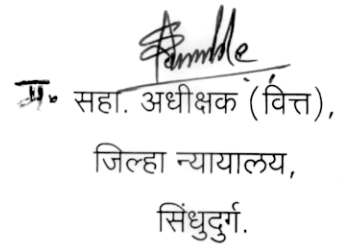 प्र. सहा. अधीक्षक (वित्त),
जिल्हा न्यायालय,
सिंधुदुर्ग.